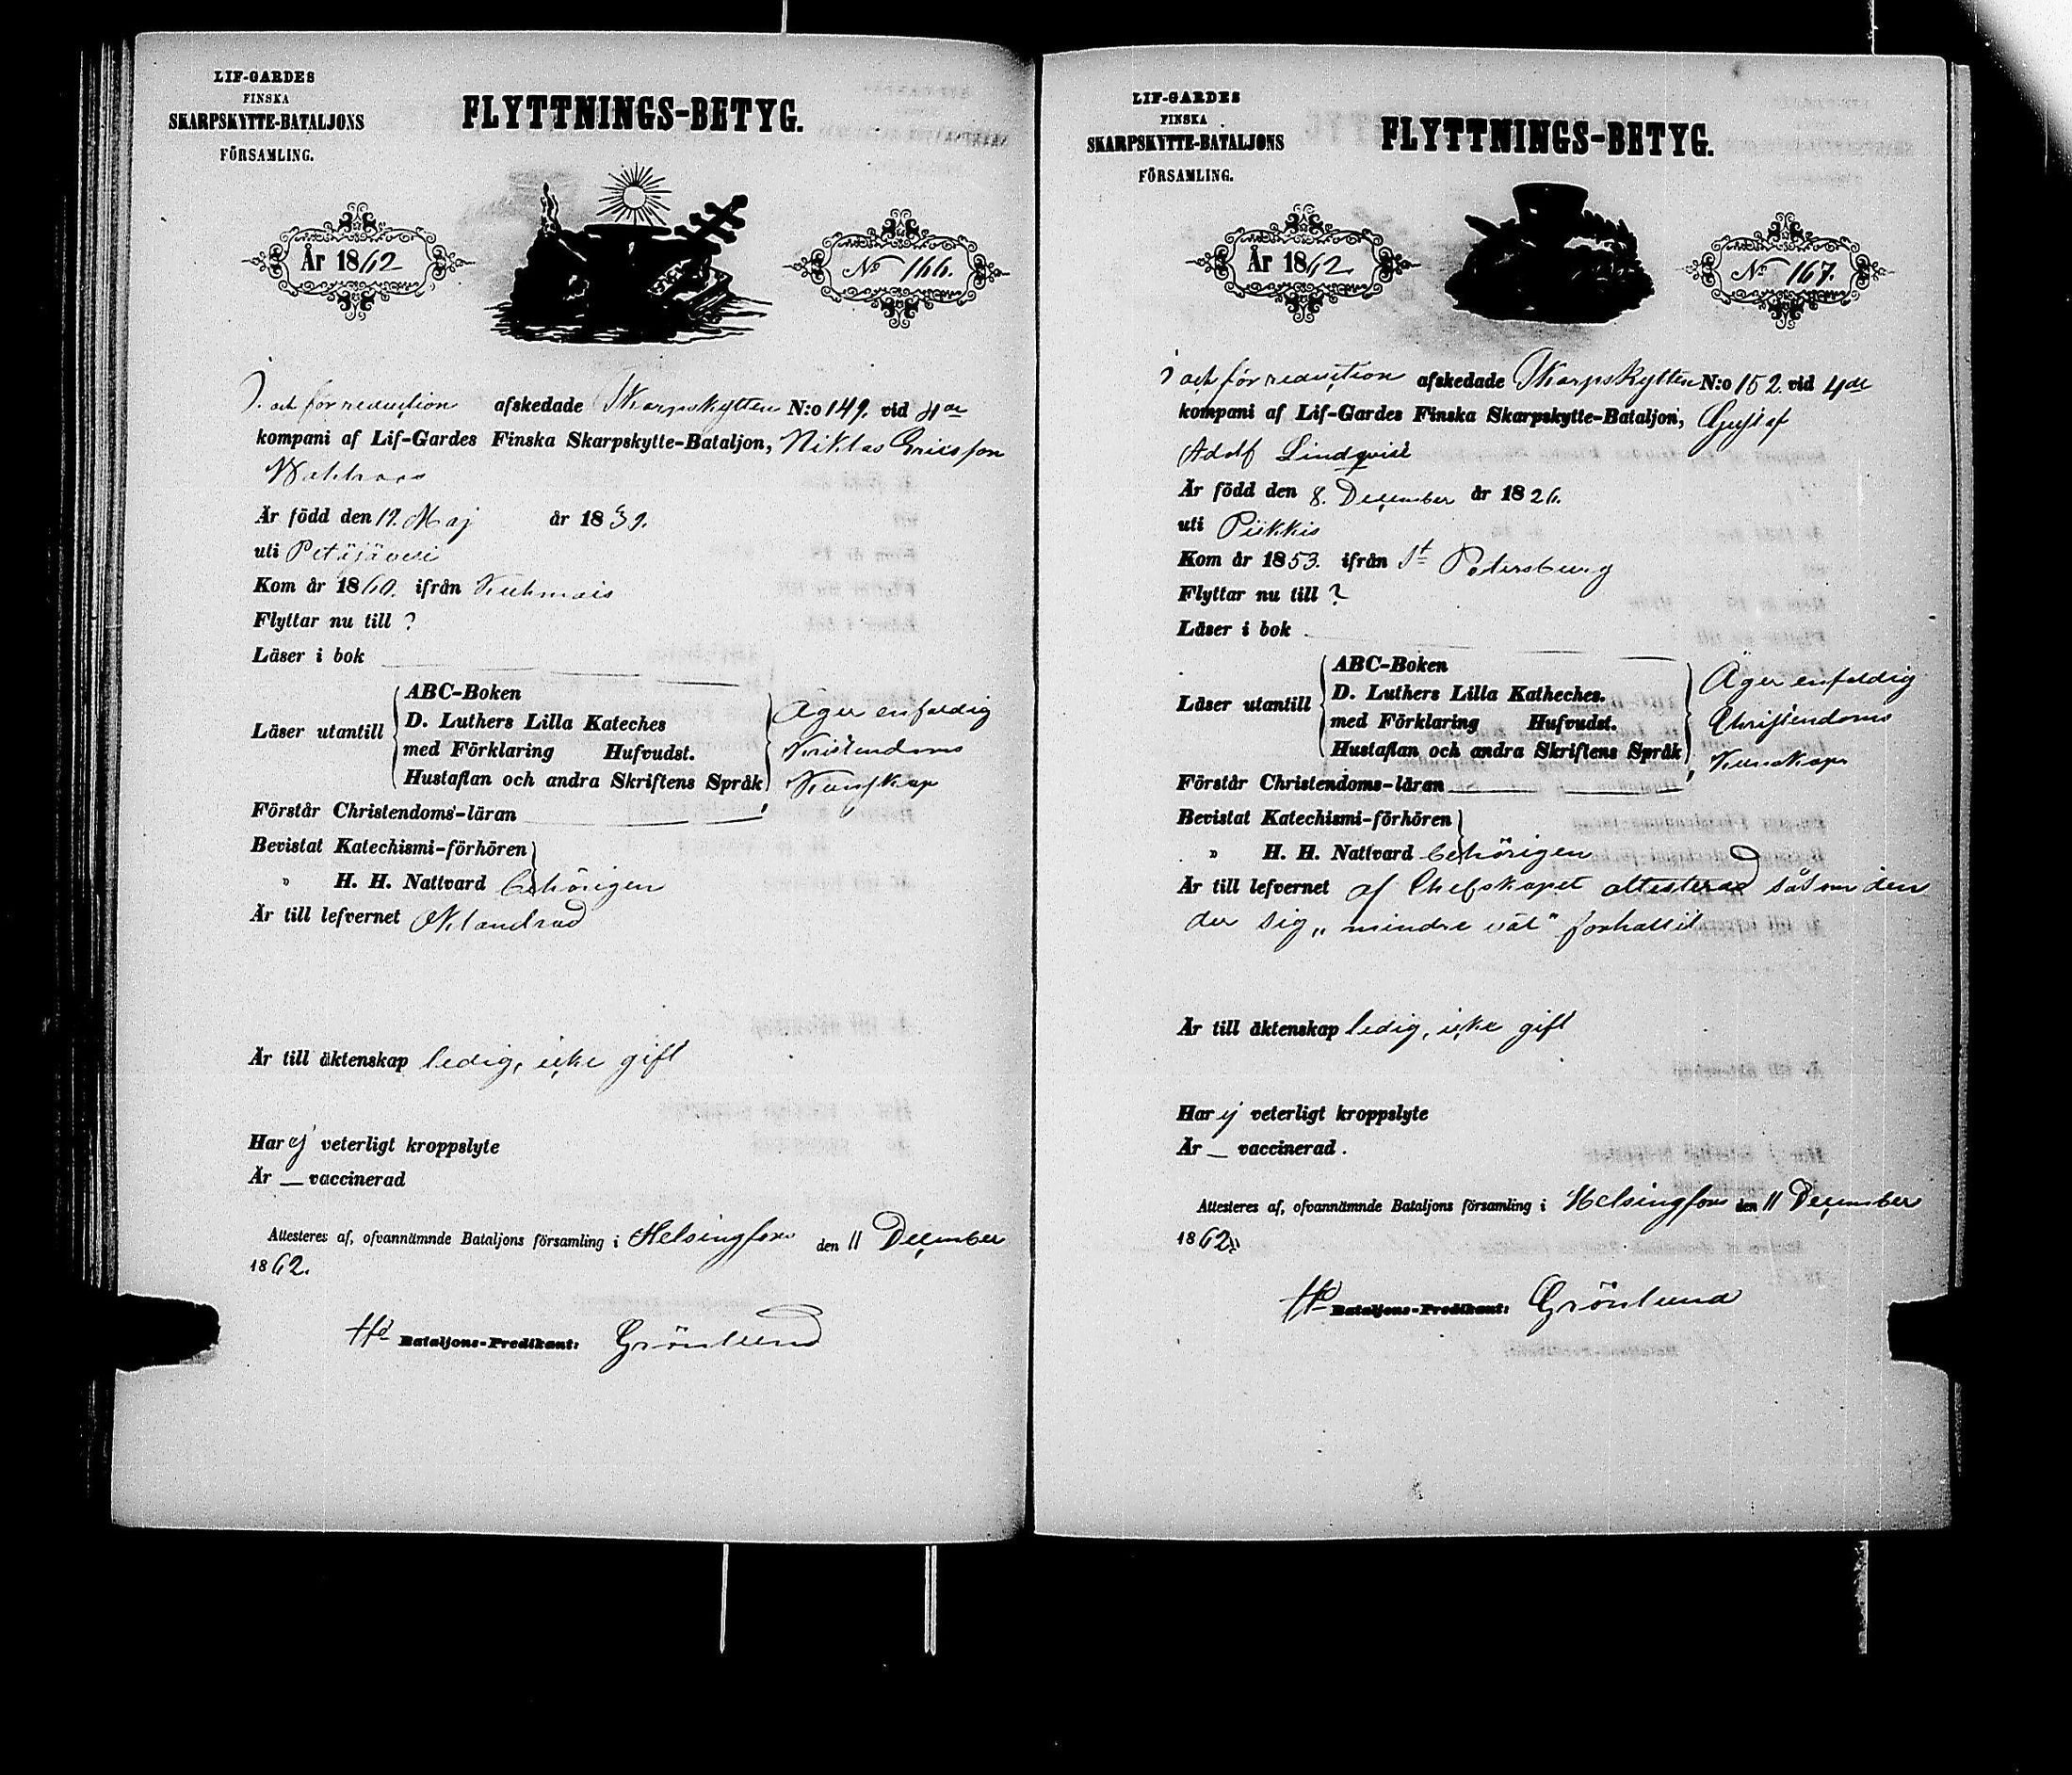 LIF-GARDES
FINSKA
SKARPSKYTTE-BATALJONS
FÖRSAMLING.
FLYTTNINGS-BETYG.
År 1862
No 166.
I. och för reduction afskedade Skarpskytten N:o 149. vid 4de
kompani af Lif-Gardes Finska Skarpskytte-Bataljon, Niklas Ericsson
Är född den 19. Maj år 1839.
uti Petäjävesi
Kom år 1860. ifrån Kuhmois
Flyttar nu till ?
Läser i bok
Läser utantill
ABC-Boken
D. Luthers Lilla Kateches
med Förklaring Hufvudst.
Hustaflan och andra Skriftens Språk
Äger enfaldig
Kristendoms
Kunskap
Förstår Christendoms-läran
Bevistat Katechismi-förhören
» H. H. Nattvard behörigen
Är till lefvernet oklandrad
Är till äktenskap ledig, icke gift
Har ej veterligt kroppslyte
Är _ vaccinerad
Attesteres af, ofvannämnde Bataljons församling i Helsingfors den 11 December
1862.
Bataljons-Predikant: Grönlund
LIF-GARDES
FINSKA
SKARPSKYTTE-BATALJONS
FÖRSAMLING.
FLYTTNINGS-BETYG.
År 1862
No 167.
I och för reduction afskedade Skarpskytten N:o 152. vid 4de
kompani af Lif-Gardes Finska Skarpskytte-Bataljon, Gustaf
Adolf Lindqvist
Är född den 8. December år 1826.
uti Piikkis
Kom år 1853. ifrån St Petersburg
Flyttar nu till ?
Läser i bok
Läser utantill
ABC-Boken
D. Luthers Lilla Katheches.
med Förklaring Hufvudst.
Hustaflan och andra Skriftens Språk
Äger enfaldig
Christendoms
Kunskap
Förstår Christendoms-läran
Bevistat Katechismi-förhören
» H. H. Nattvard behörigen
Är till lefvernet af Chefskapet attesterad såsom den
der sig „mindre väl" förhållit
Är till äktenskap ledig, icke gift
Har ej veterligt kroppslyte
Är _ vaccinerad.
Attesteres af, ofvannämnde Bataljons församling i Helsingfors den 11 December
1862.
Bataljons-Predikant: Grönlund